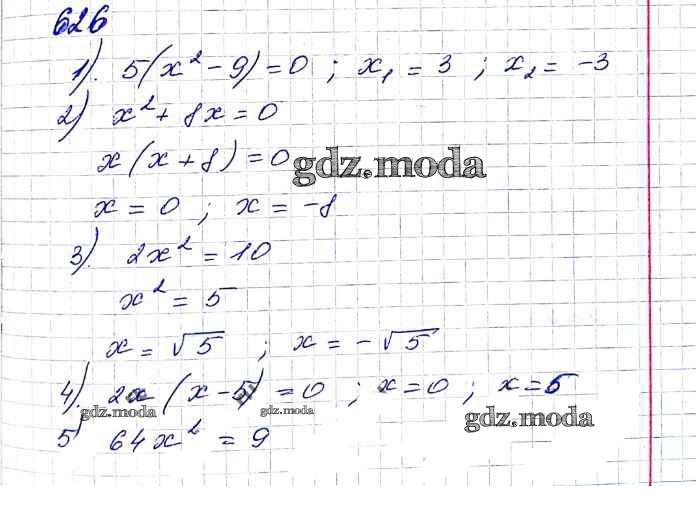 626
1). 5(x² - 9) = 0 ; x₁ = 3 ; x₂ = -3
2) x² + 8x = 0
x(x + 8) = 0
gdz.moda
x = 0 ; x = -8
3). 2x² = 10
x² = 5
x = √5 ; x = -√5
4). 2x(x - 5) = 0 ; x = 0 ; x = 5
gdz.moda gdz.moda gdz.moda
5) 64x² = 9